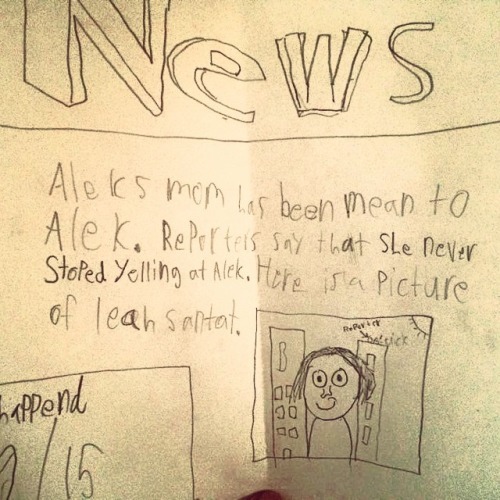 News
Aleks mom has been mean to
Alek. Reporters say that she never
Stoped Yelling at Alek. Here is a picture
of leah santat.
Reporter
B
happend
/15